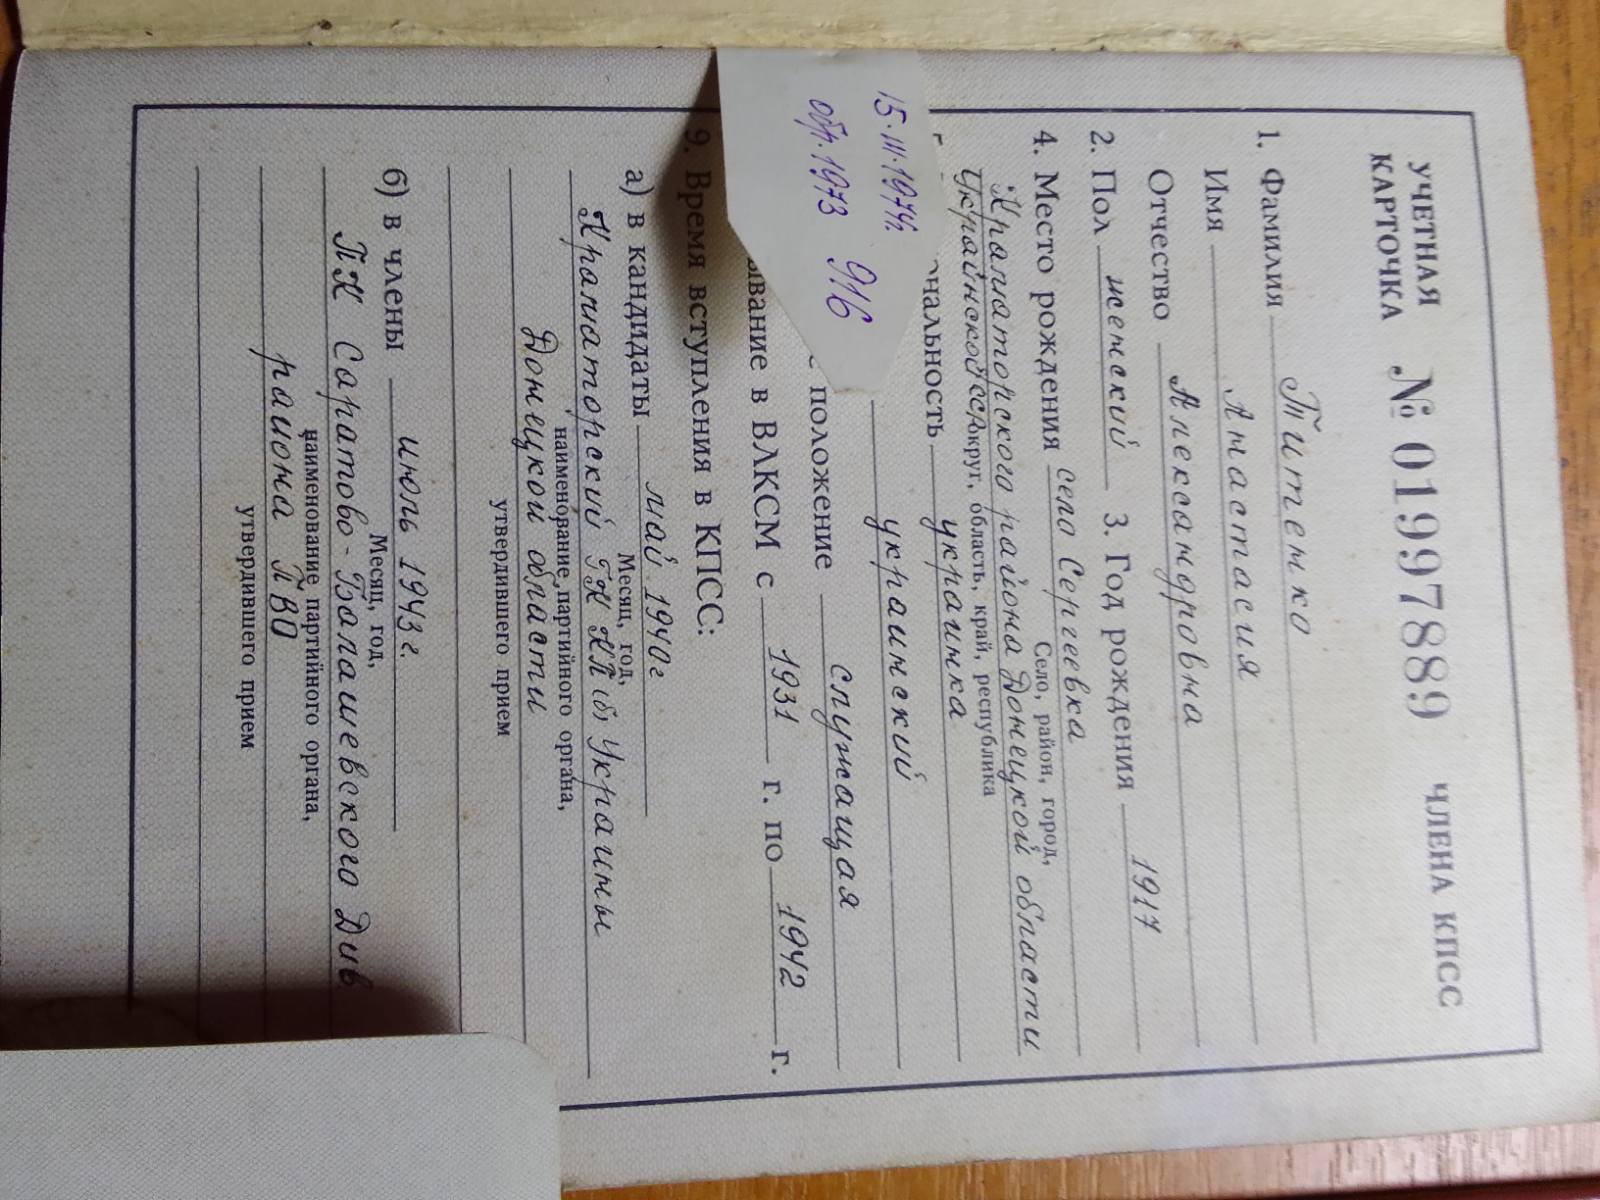 УЧЕТНАЯ КАРТОЧКА № 01997889 ЧЛЕНА КПСС
1. Фамилия Титенко
Имя Анастасия
Отчество Александровна
2. Пол женский 3. Год рождения 1917
4. Место рождения село Сергеевка
Село, район, город,
Краматорского района Донецкой области
округ, область, край, республика
Украинской ССР
ональность украинка
украинский
положение служащая
ывание в ВЛКСМ с 1931 г. по 1942 г.
15.III.1974г.
обр. 1973 916
9. Время вступления в КПСС:
а) в кандидаты май 1940г
Месяц, год,
Краматорский ГК КП(б) Украины
наименование партийного органа,
Донецкой области
утвердившего прием
б) в члены июль 1943г.
Месяц, год,
ПК Саратово-Балашевского Див
наименование партийного органа,
района ПВО
утвердившего прием